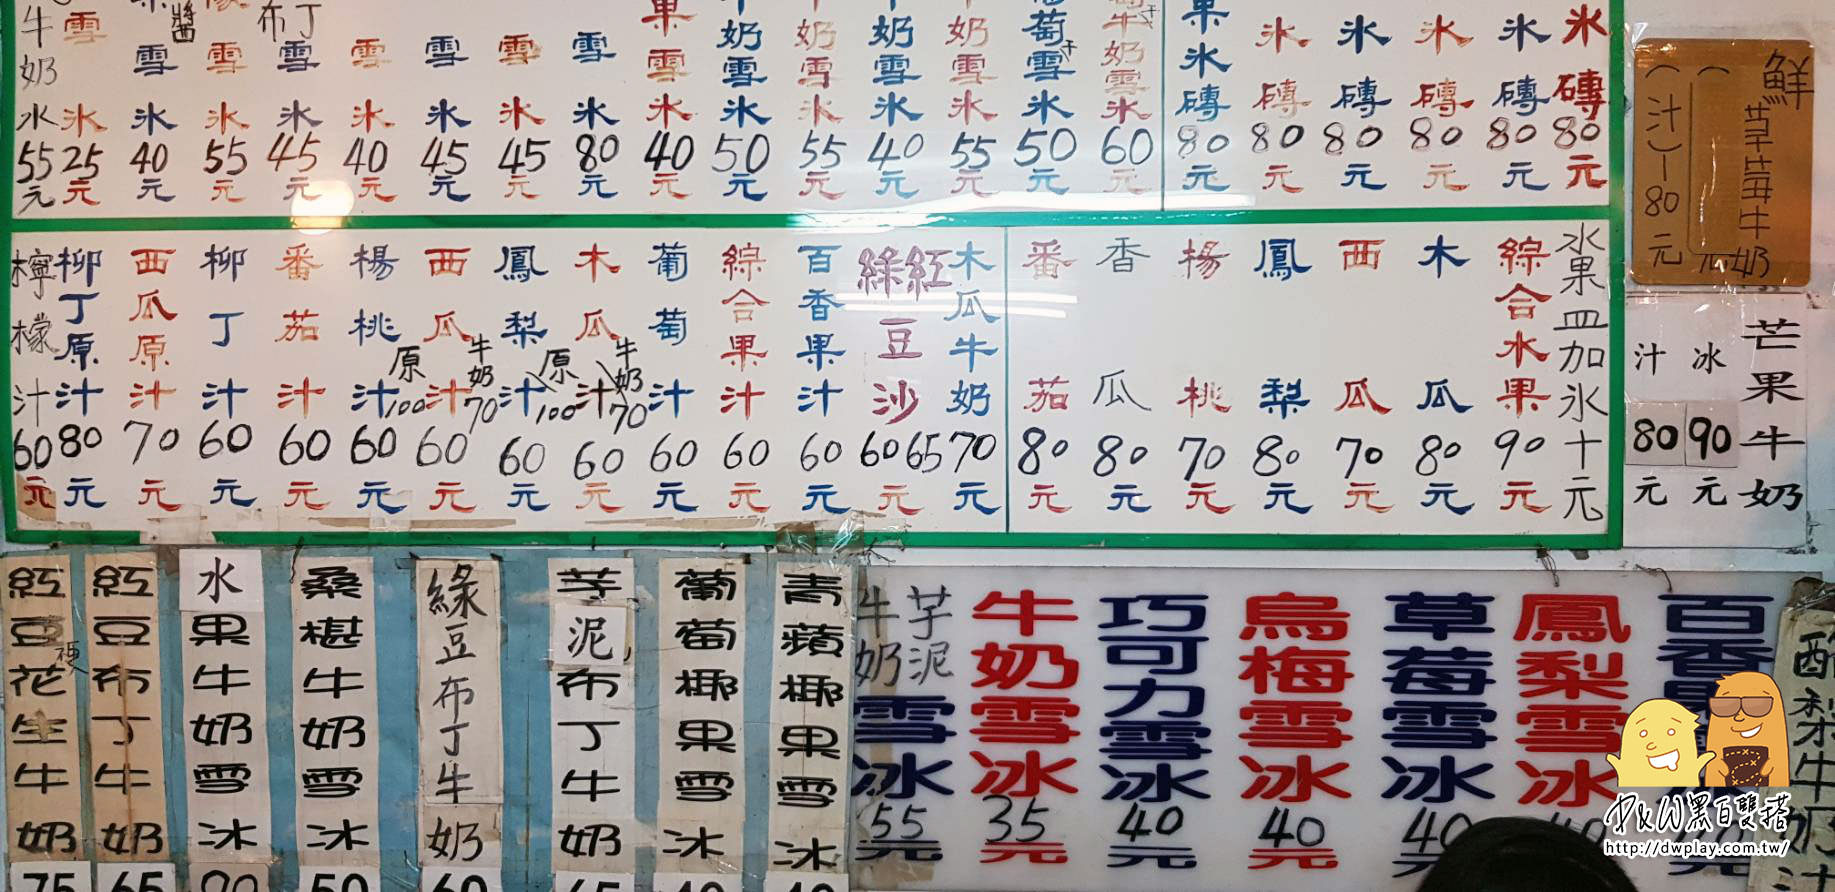 牛奶水55元
雪氷25元
雪氷40元
雪氷55元
布丁雪氷45元
雪氷40元
雪氷45元
雪氷45元
雪氷80元
果雪氷40元
牛奶雪氷50元
奶雪氷55元
牛奶雪氷40元
奶雪氷55元
葡萄雪氷50元
牛奶雪氷60元
果氷磚80元
氷磚80元
氷磚80元
氷磚80元
氷磚80元
氷磚80元
鮮草莓牛奶
(汁)-80元
檸檬汁60元
柳丁原汁80元
西瓜原汁70元
柳丁汁60元
番茄汁60元
楊桃汁60元
原100
西瓜汁60元
牛奶70
鳳梨汁60元
原100
木瓜汁60元
牛奶70
葡萄汁60元
綜合果汁60元
百香果汁60元
綠紅豆沙60 65
木瓜牛奶70元
番茄80元
香瓜80元
楊桃70元
鳳梨80元
西瓜70元
木瓜80元
綜合水果90元
水果皿加氷十元
芒果牛奶
冰90元
汁80元
紅豆花生牛奶75
紅豆布丁牛奶65
水果牛奶雪冰90
桑椹牛奶雪冰50
綠豆布丁牛奶60
芋泥布丁牛奶65
葡萄椰果雪冰40
青蘋椰果雪冰40
芋泥牛奶雪冰55元
牛奶雪冰35元
巧可力雪冰40元
烏梅雪冰40元
草莓雪冰40元
鳳梨雪冰40
百香果
酪梨牛奶汁
D&W黑白雙搭
http://dwplay.com.tw/